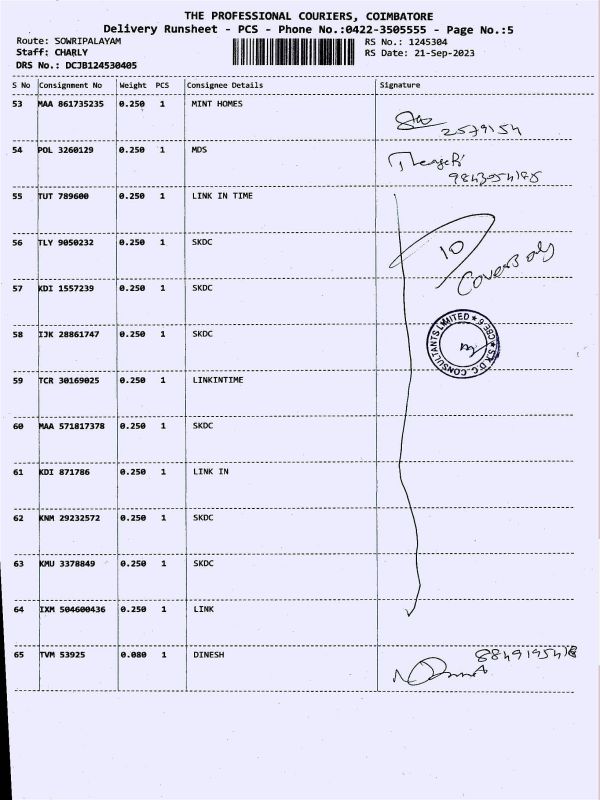 THE PROFESSIONAL COURIERS, COIMBATORE
Delivery Runsheet - PCS - Phone No.:0422-3505555 - Page No.:5
Route: SOWRIPALAYAM RS No.: 1245304
Staff: CHARLY RS Date: 21-Sep-2023
DRS No.: DCJB124530405
S No Consignment No Weight PCS Consignee Details Signature
53 MAA 861735235 0.250 1 MINT HOMES
2579154
54 POL 3260129 0.250 1 MDS
55 TUT 789600 0.250 1 LINK IN TIME
56 TLY 9050232 0.250 1 SKDC
10
57 KDI 1557239 0.250 1 SKDC
58 IJK 28861747 0.250 1 SKDC
S.K.D.C. CONSULTANTS LIMITED ★ CBE-6 ★
59 TCR 30169025 0.250 1 LINKINTIME
60 MAA 571817378 0.250 1 SKDC
61 KDI 871786 0.250 1 LINK IN
62 KNM 29232572 0.250 1 SKDC
63 KMU 3378849 0.250 1 SKDC
64 IXM 504600436 0.250 1 LINK
65 TVM 53925 0.080 1 DINESH